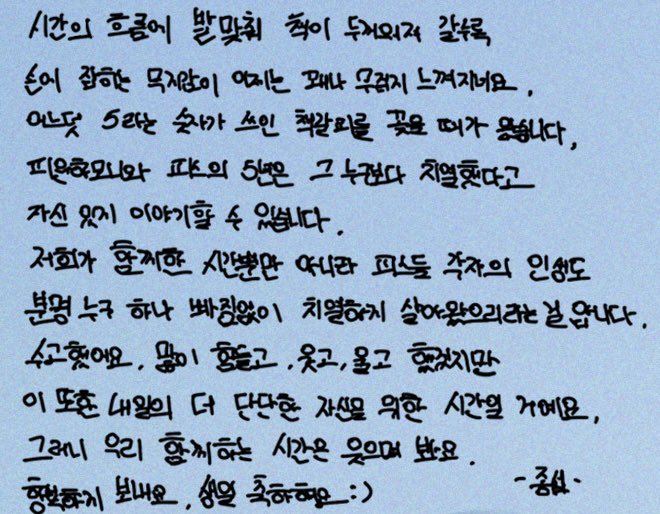 시간의 흐름에 발맞춰 책이 두꺼워져 갈수록
손에 잡히는 묵직함이 이제는 꽤나 무겁게 느껴지네요.
어느덧 5라는 숫자가 쓰인 책갈피를 꽂을 때가 왔습니다.
피원하모니와 피스의 5년은 그 누구보다 치열했다고
자신 있게 이야기할 수 있습니다.
저희가 함께한 시간뿐만 아니라 피스들 각자의 인생도
분명 누구 하나 빠짐없이 치열하게 살아왔으리라는 걸 압니다.
수고했어요, 많이 힘들고, 웃고, 울고 했겠지만
이 또한 내일의 더 단단한 자신을 위한 시간일 거예요.
그러니 우리 함께하는 시간은 웃으며 봐요.
행복하게 보내요, 생일 축하해요 :)
-종섭-